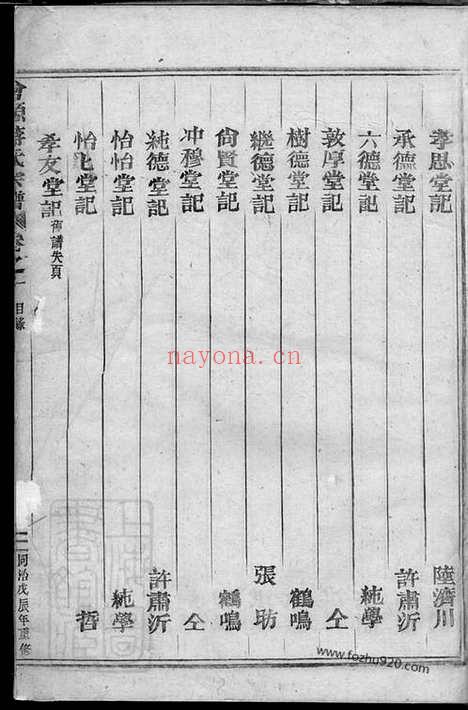 孝思堂記 陸濟川
承德堂記 許肅沂
六德堂記 純學
敦厚堂記 仝
樹德堂記 鶴鳴
繼德堂記 張昉
尙賢堂記 鶴鳴
冲穆堂記 仝
純德堂記 許肅沂
怡怡堂記 純學
怡化堂記 哲
孝友堂記 舊譜失頁
氏宗譜 卷之一 目錄 二 同治戊辰年重修
nayona.cn
www.fozhu920.com